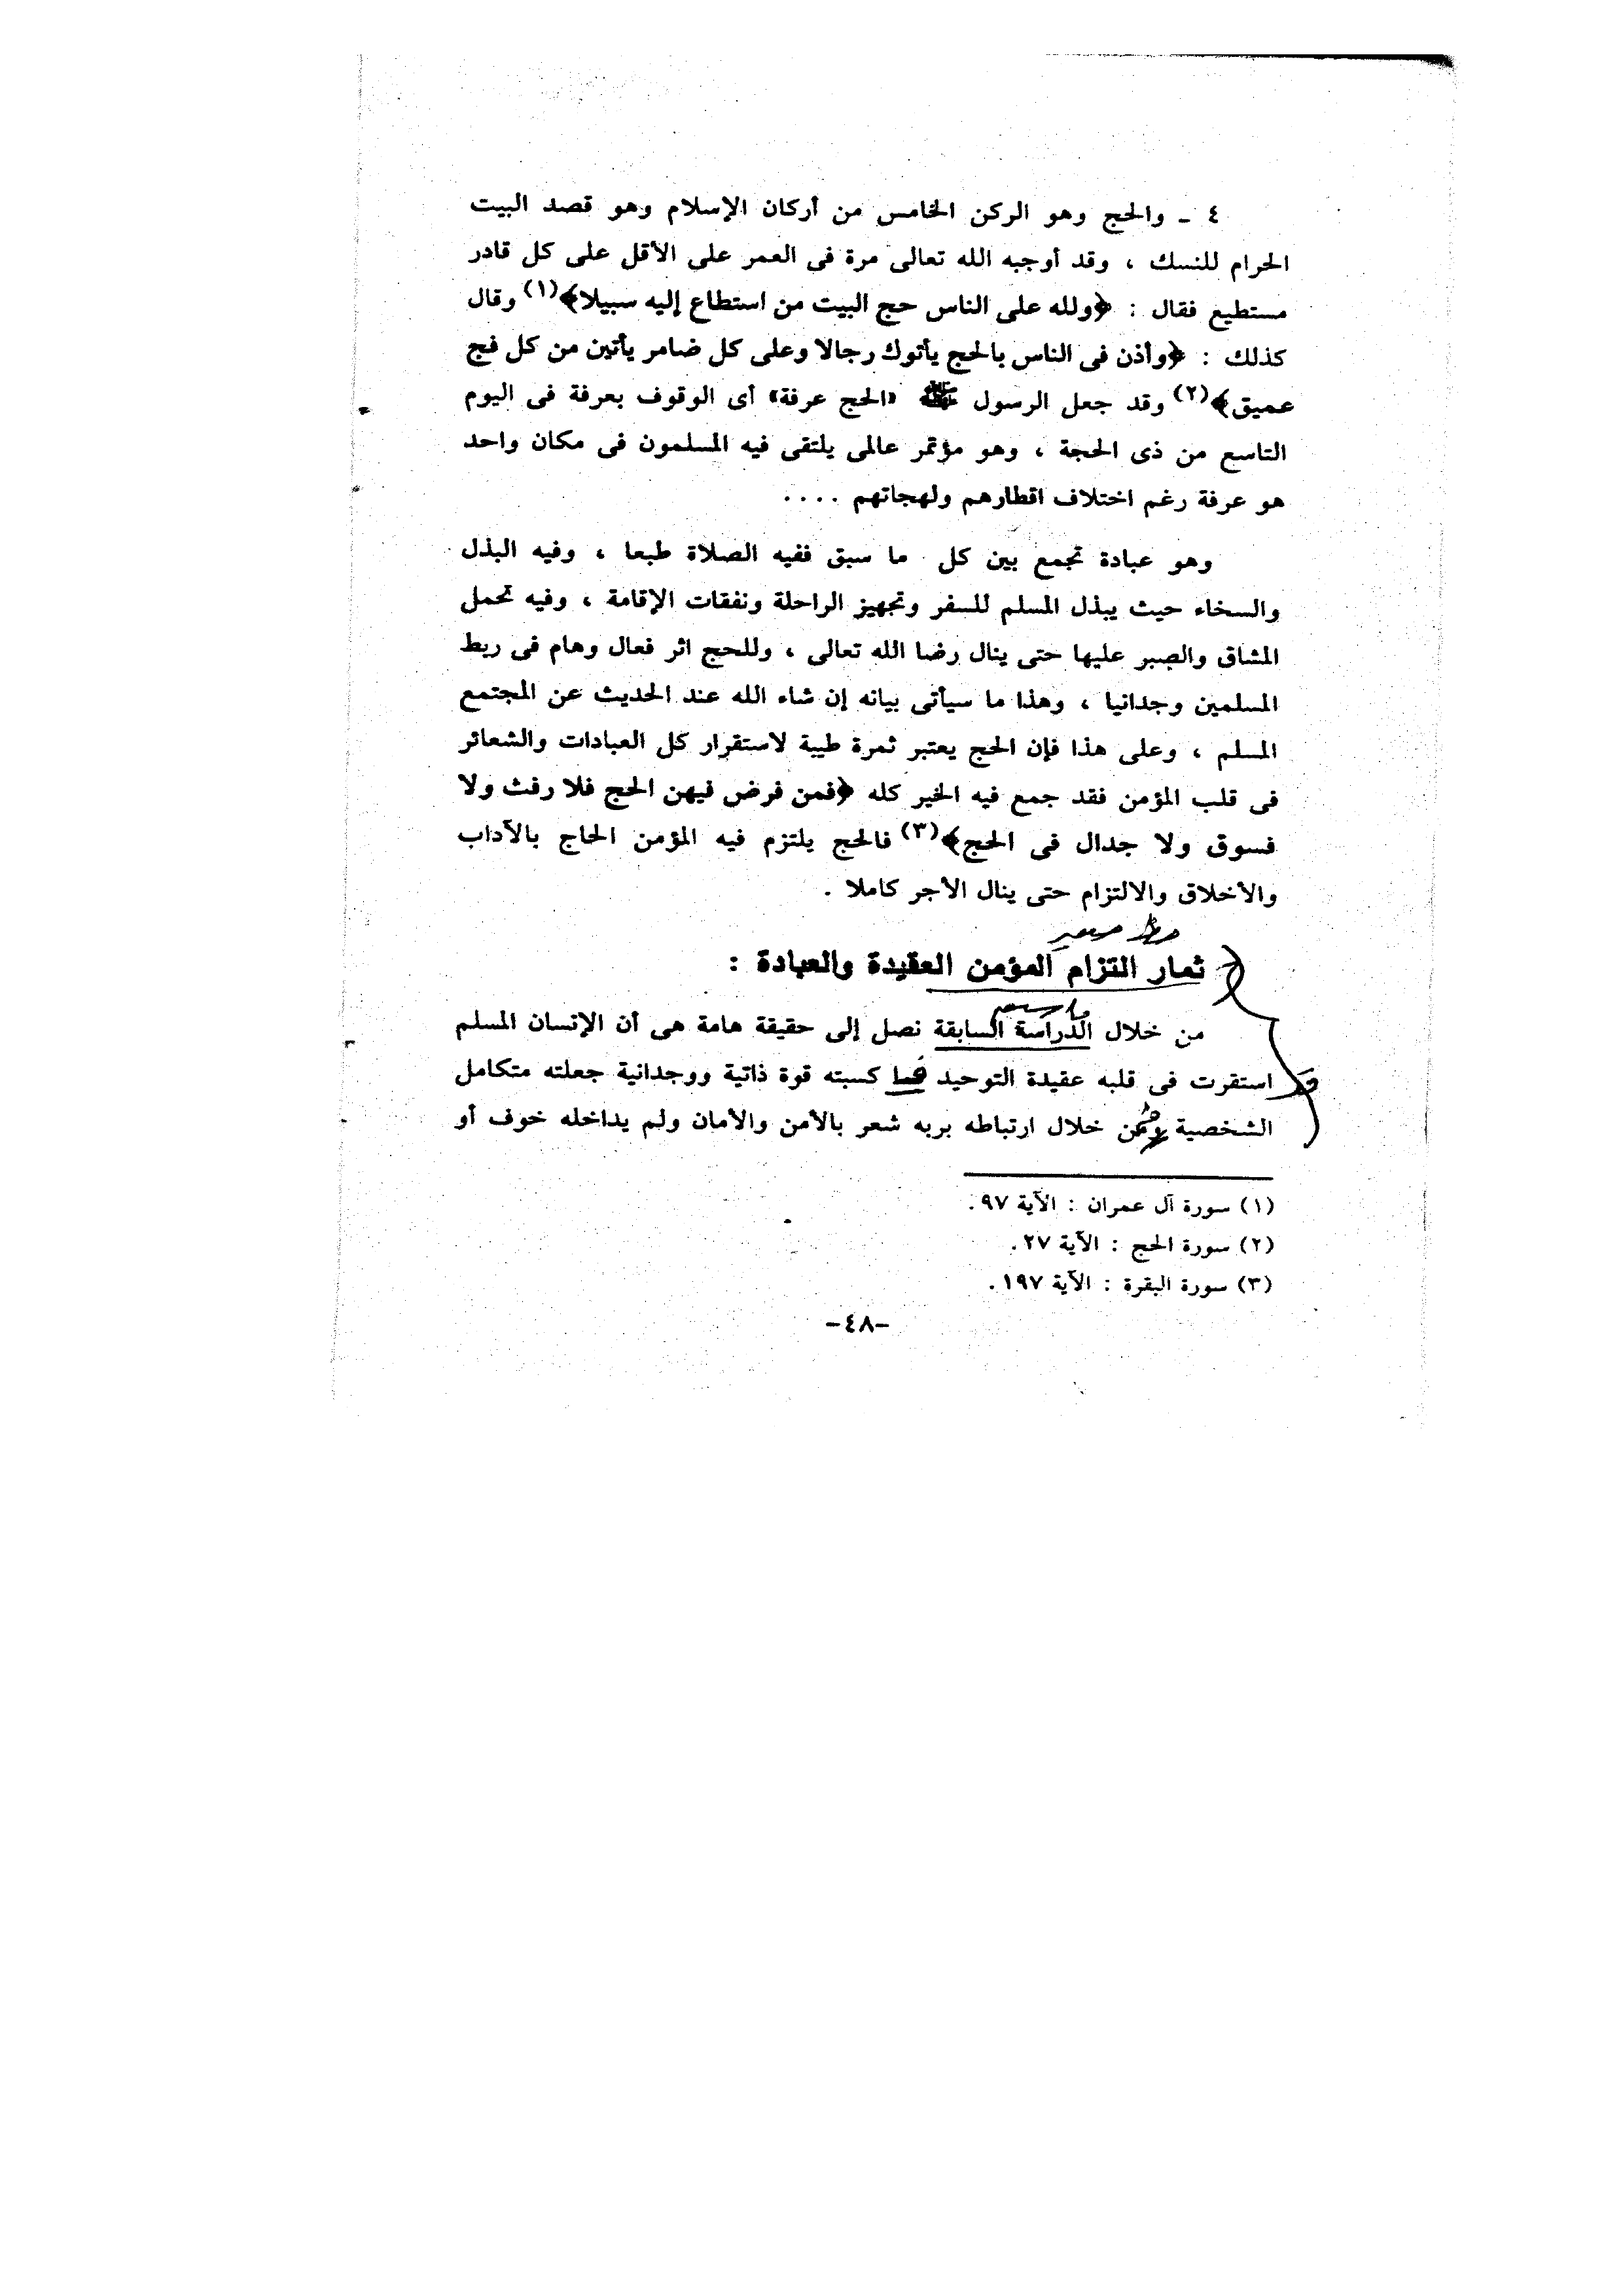 ٤ ـ والحج وهو الركن الخامس من أركان الإسلام وهو قصد البيت
الحرام للنسك ، وقد أوجبه الله تعالى مرة فى العمر على الأقل على كل قادر
مستطيع فقال : ﴿ولله على الناس حج البيت من استطاع إليه سبيلا﴾(١) وقال
كذلك : ﴿وأذن فى الناس بالحج يأتوك رجالا وعلى كل ضامر يأتين من كل فج
عميق﴾(٢) وقد جعل الرسول ﷺ «الحج عرفة» أى الوقوف بعرفة فى اليوم
التاسع من ذى الحجة ، وهو مؤتمر عالمى يلتقى فيه المسلمون فى مكان واحد
هو عرفة رغم اختلاف اقطارهم ولهجاتهم ....
وهو عبادة تجمع بين كل ما سبق ففيه الصلاة طبعا ، وفيه البذل
والسخاء حيث يبذل المسلم للسفر وتجهيز الراحلة ونفقات الإقامة ، وفيه تحمل
المشاق والصبر عليها حتى ينال رضا الله تعالى ، وللحج اثر فعال وهام فى ربط
المسلمين وجدانيا ، وهذا ما سيأتى بيانه إن شاء الله عند الحديث عن المجتمع
المسلم ، وعلى هذا فإن الحج يعتبر ثمرة طيبة لاستقرار كل العبادات والشعائر
فى قلب المؤمن فقد جمع فيه الخير كله ﴿فمن فرض فيهن الحج فلا رفث ولا
فسوق ولا جدال فى الحج﴾(٣) فالحج يلتزم فيه المؤمن الحاج بالآداب
والأخلاق والالتزام حتى ينال الأجر كاملا .
ثمار التزام المؤمن العقيدة والعبادة :
من خلال الدراسة السابقة نصل إلى حقيقة هامة هى أن الإنسان المسلم
استقرت فى قلبه عقيدة التوحيد كسبته قوة ذاتية ووجدانية جعلته متكامل
الشخصية ومن خلال ارتباطه بربه شعر بالأمن والأمان ولم يداخله خوف أو
(١) سورة آل عمران : الآية ٩٧.
(٢) سورة الحج : الآية ٢٧.
(٣) سورة البقرة : الآية ١٩٧.
-٤٨-